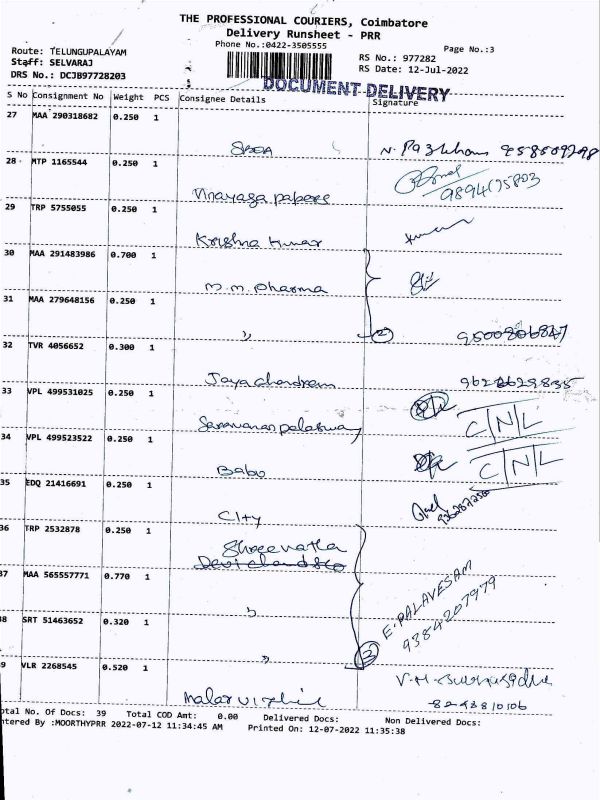 THE PROFESSIONAL COURIERS, Coimbatore
Delivery Runsheet - PRR
Phone No.:0422-3505555
Page No.:3
Route: TELUNGUPALAYAM
Staff: SELVARAJ
RS No.: 977282
DRS No.: DCJB97728203
RS Date: 12-Jul-2022
DOCUMENT DELIVERY
S No Consignment No Weight PCS Consignee Details Signature
27 MAA 290318682 0.250 1
28 MTP 1165544 0.250 1
Vinayaga papers
29 TRP 5755055 0.250 1
Krishna Kumar
30 MAA 291483986 0.700 1
M.M. Pharma
31 MAA 279648156 0.250 1
" 2
32 TVR 4056652 0.300 1
33 VPL 499531025 0.250 1
C/N/L
34 VPL 499523522 0.250 1
Babu C/N/L
35 EDQ 21416691 0.250 1
City
36 TRP 2532878 0.250 1
37 MAA 565557771 0.770 1
" E. PALAVESAM
9384207979
38 SRT 51463652 0.320 1
" 3
9 VLR 2268545 0.520 1
otal No. Of Docs: 39 Total COD Amt: 0.00 Delivered Docs: Non Delivered Docs:
ntered By :MOORTHYPRR 2022-07-12 11:34:45 AM Printed On: 12-07-2022 11:35:38